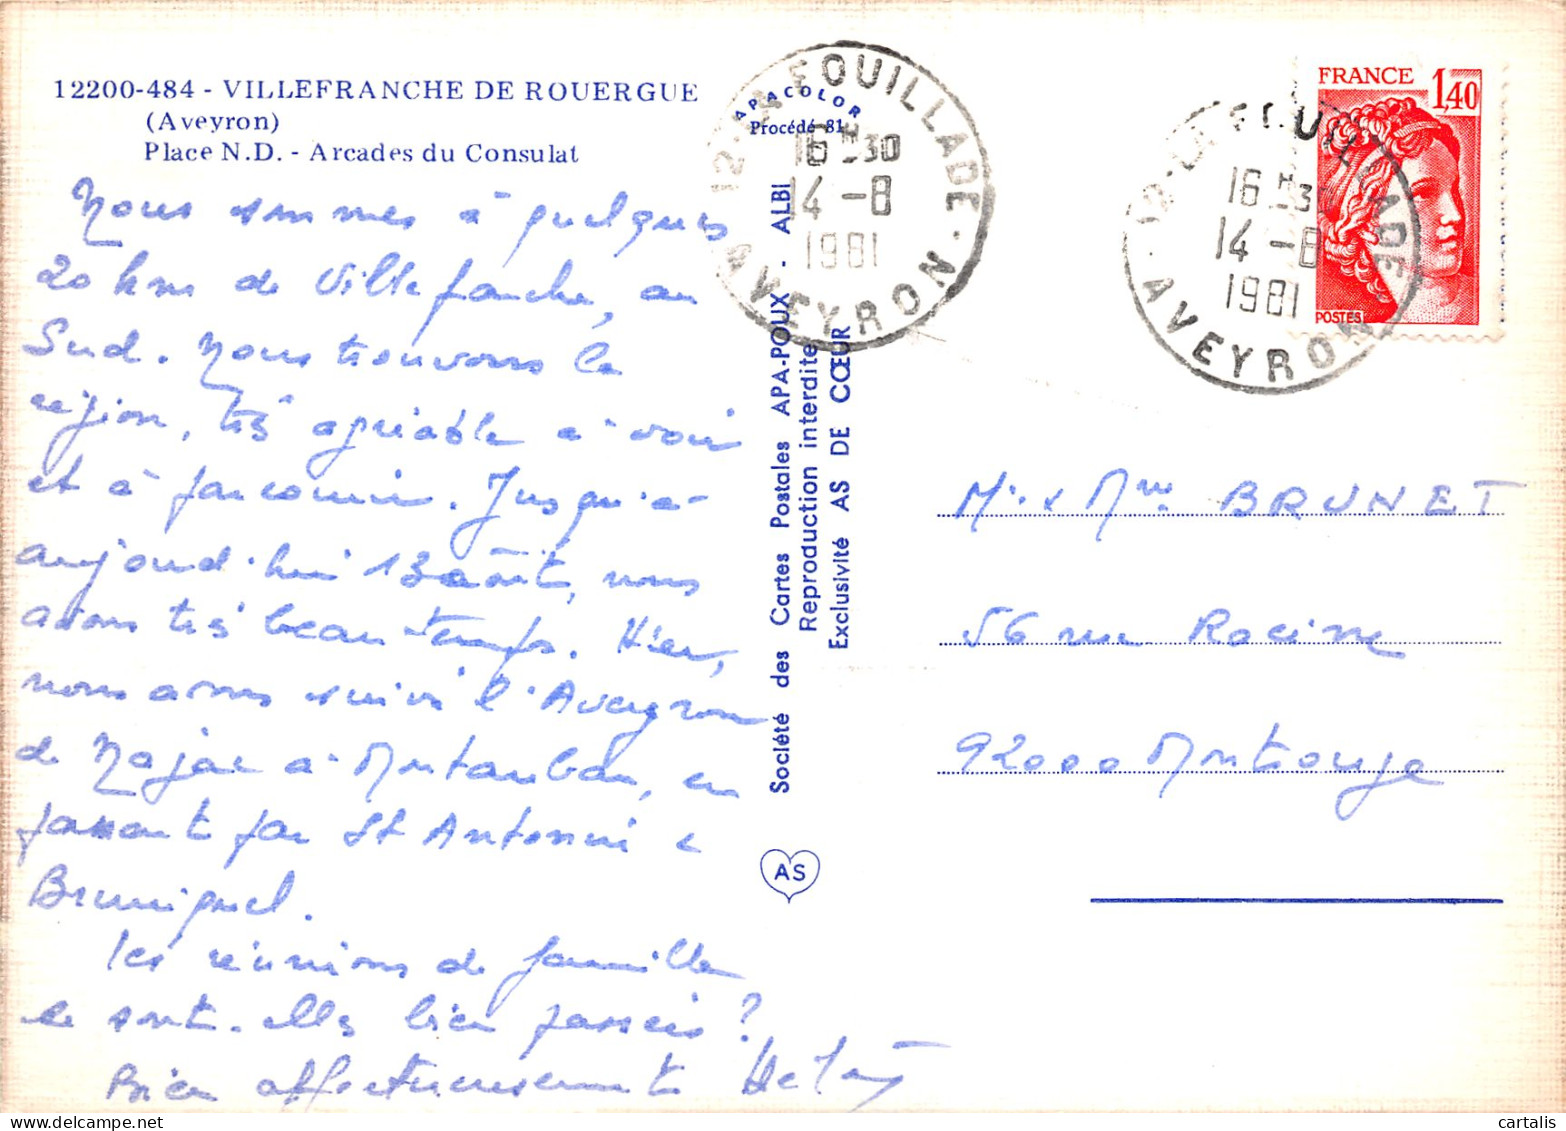 12200-484 - VILLEFRANCHE DE ROUERGUE
(Aveyron)
Place N.D. - Arcades du Consulat
Nous sommes à quelques
20 kms de Villefranche, au
Sud. Nous trouvons la
région, très agréable à voir
et à parcourir. Jusqu'à
aujourd'hui 13 août, nous
avons très beau temps. Hier,
nous avons suivi l'Aveyron
de Najac à Montauban, en
passant par St Antonin &
Bruniquel.
Les réunions de famille
se sont-elles bien passées?
Bien affectueusement
APACOLOR
Procédé 81
Société des Cartes Postales APA-POUX - ALBI
Reproduction interdite
Exclusivité AS DE CŒUR
AS
12-LA FOUILLADE
16H30
14-8
1981
AVEYRON
12-LA FOUILLADE
16H30
14-8
1981
AVEYRON
FRANCE 1,40
POSTES
Mr & Mme BRUNET
56 rue Racine
92000 Montrouge
cartalis